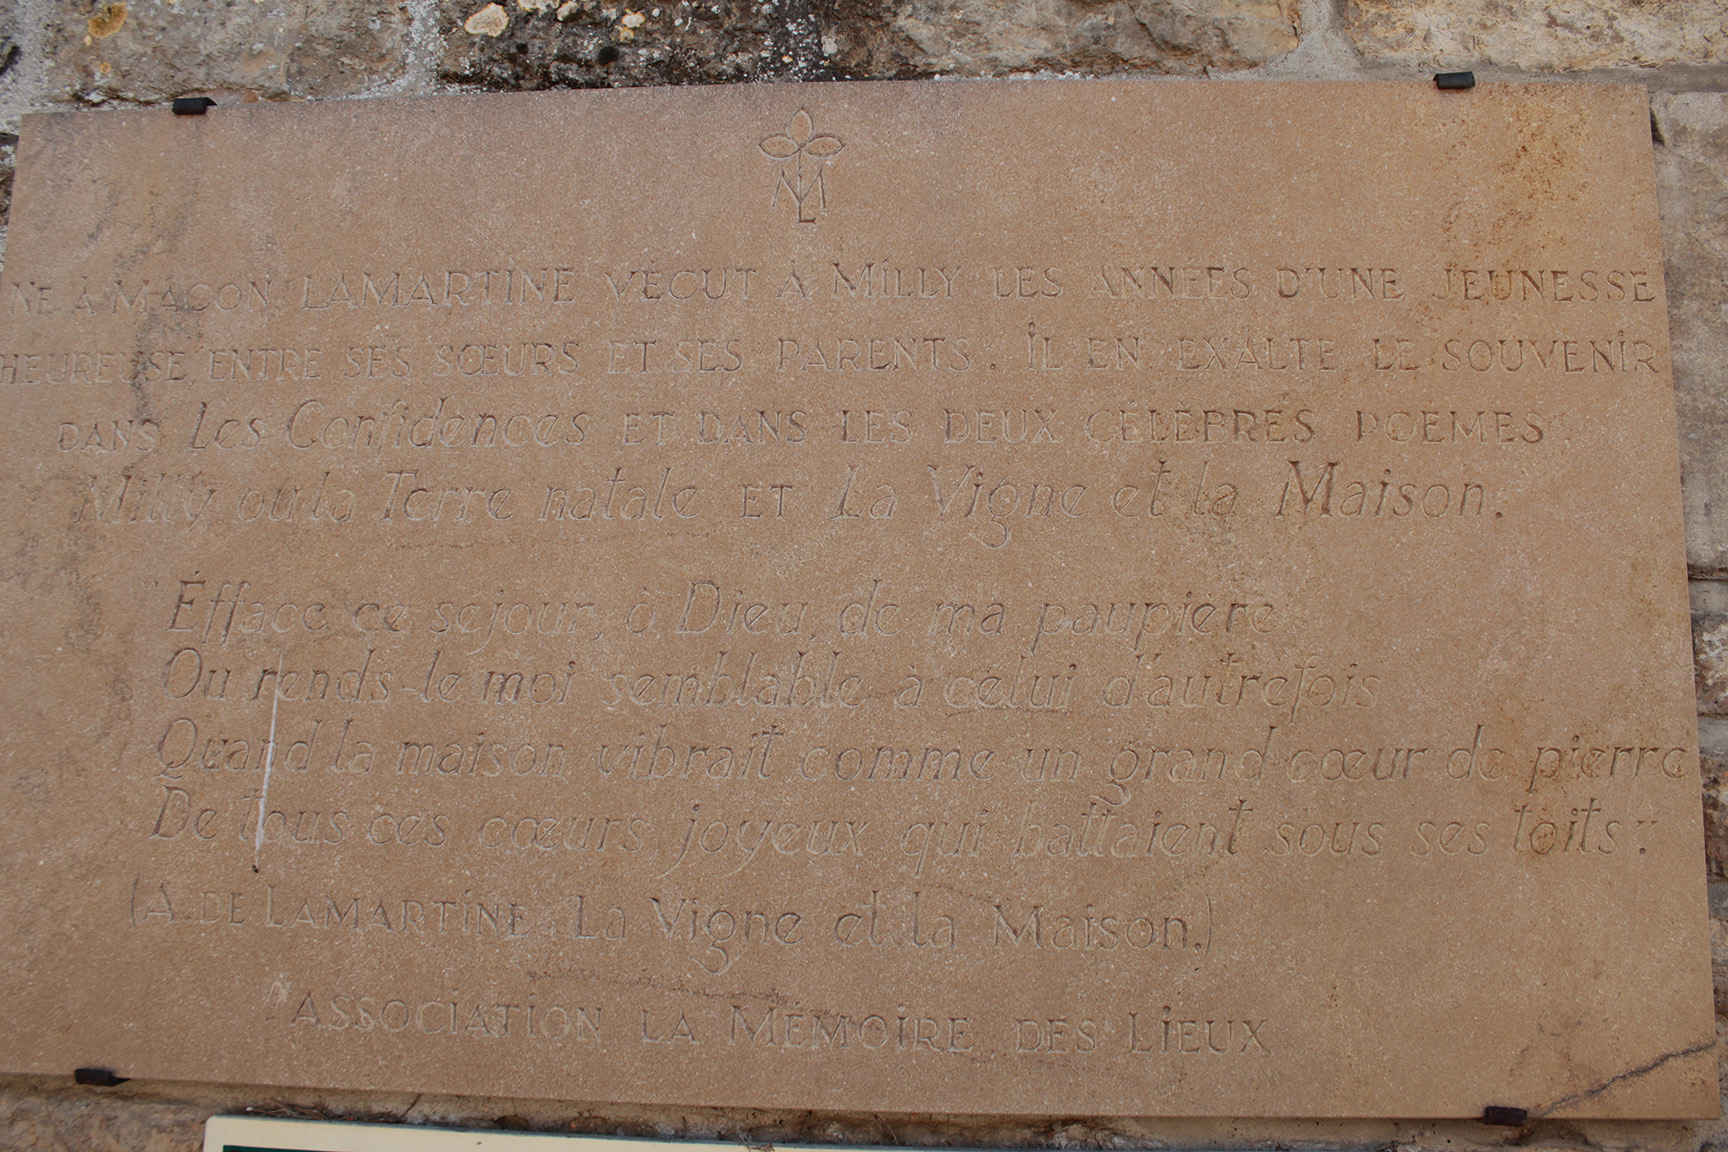 ML
NÉ À MACON LAMARTINE VÉCUT À MILLY LES ANNÉES D'UNE JEUNESSE
HEUREUSE, ENTRE SES SŒURS ET SES PARENTS. IL EN EXALTE LE SOUVENIR
DANS Les Confidences ET DANS LES DEUX CÉLÈBRES POÈMES :
Milly ou la Terre natale ET La Vigne et la Maison.
"Éfface ce séjour, ô Dieu, de ma paupière
Ou rends-le moi semblable à celui d'autrefois
Quand la maison vibrait comme un grand cœur de pierre
De tous ces cœurs joyeux qui battaient sous ses toits".
(A. DE LAMARTINE. La Vigne et la Maison.)
ASSOCIATION LA MÉMOIRE DES LIEUX